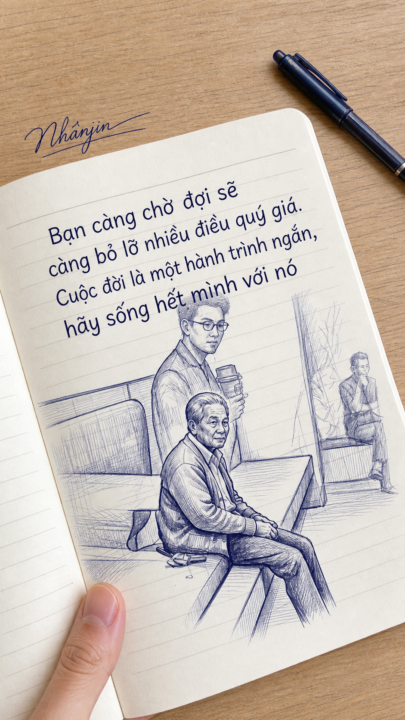 Nhânjin
Bạn càng chờ đợi sẽ
càng bỏ lỡ nhiều điều quý giá.
Cuộc đời là một hành trình ngắn,
hãy sống hết mình với nó